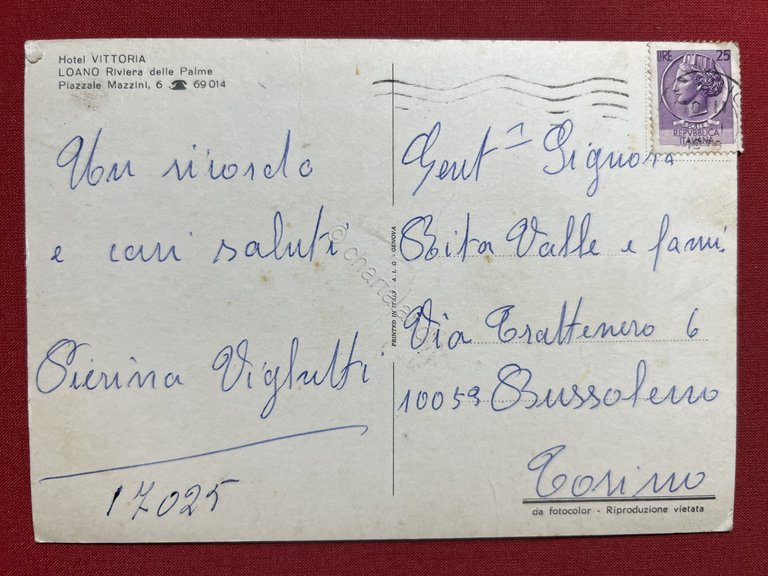 Hotel VITTORIA
LOANO Riviera delle Palme
Piazzale Mazzini, 6 ☎ 69 014
Un ricordo
e cari saluti
Pierina
17025
PRINTED IN ITALY - A. L. G. - GENOVA
LIRE 25
REPVBBLICA
ITALIANA
Gent Signora
Rita Valle e fami.
Via Trattenero 6
10053 Bussoleno
Torino
da fotocolor - Riproduzione vietata